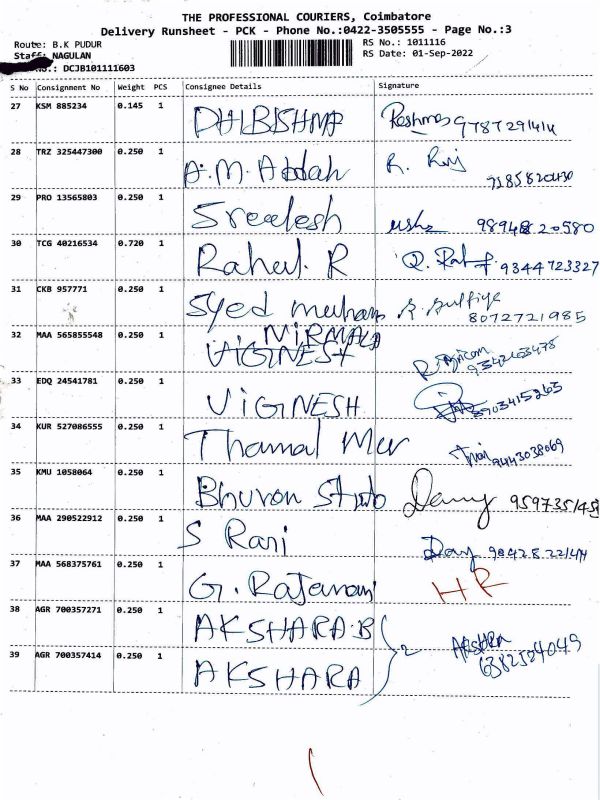 THE PROFESSIONAL COURIERS, Coimbatore
Delivery Runsheet - PCK - Phone No.:0422-3505555 - Page No.:3
Route: B.K PUDUR RS No.: 1011116
Staff: NAGULAN RS Date: 01-Sep-2022
.: DCJB101111603
S No Consignment No Weight PCS Consignee Details Signature
27 KSM 885234 0.145 1 Reshma 9787291414
28 TRZ 325447300 0.250 1 A.M. Abdah R. Raj
29 PRO 13565803 0.250 1 Sreelesh usha
30 TCG 40216534 0.720 1 Rahul. R 9344723327
31 CKB 957771 0.250 1 Syed 8072721985
32 MAA 565855548 0.250 1 NIRMALA VIGINESH
33 EDQ 24541781 0.250 1 VIGINESH 8903415263
34 KUR 527086555 0.250 1 Thamal 9443038069
35 KMU 1058064 0.250 1 Dany
36 MAA 290522912 0.250 1 S Rani
37 MAA 568375761 0.250 1 G. HR
38 AGR 700357271 0.250 1 AKSHARA.B 2 6382504049
39 AGR 700357414 0.250 1 AKSHARA